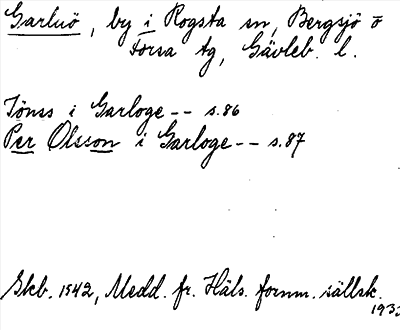 Garluö, by i Rogsta sn, Bergsjö o
Forsa tg, Gävleb. l.
Jönss i Garloge -- s.86
Per Olsson i Garloge -- s.87
Skb. 1542, Medd. fr. Häls. fornm. sällsk.